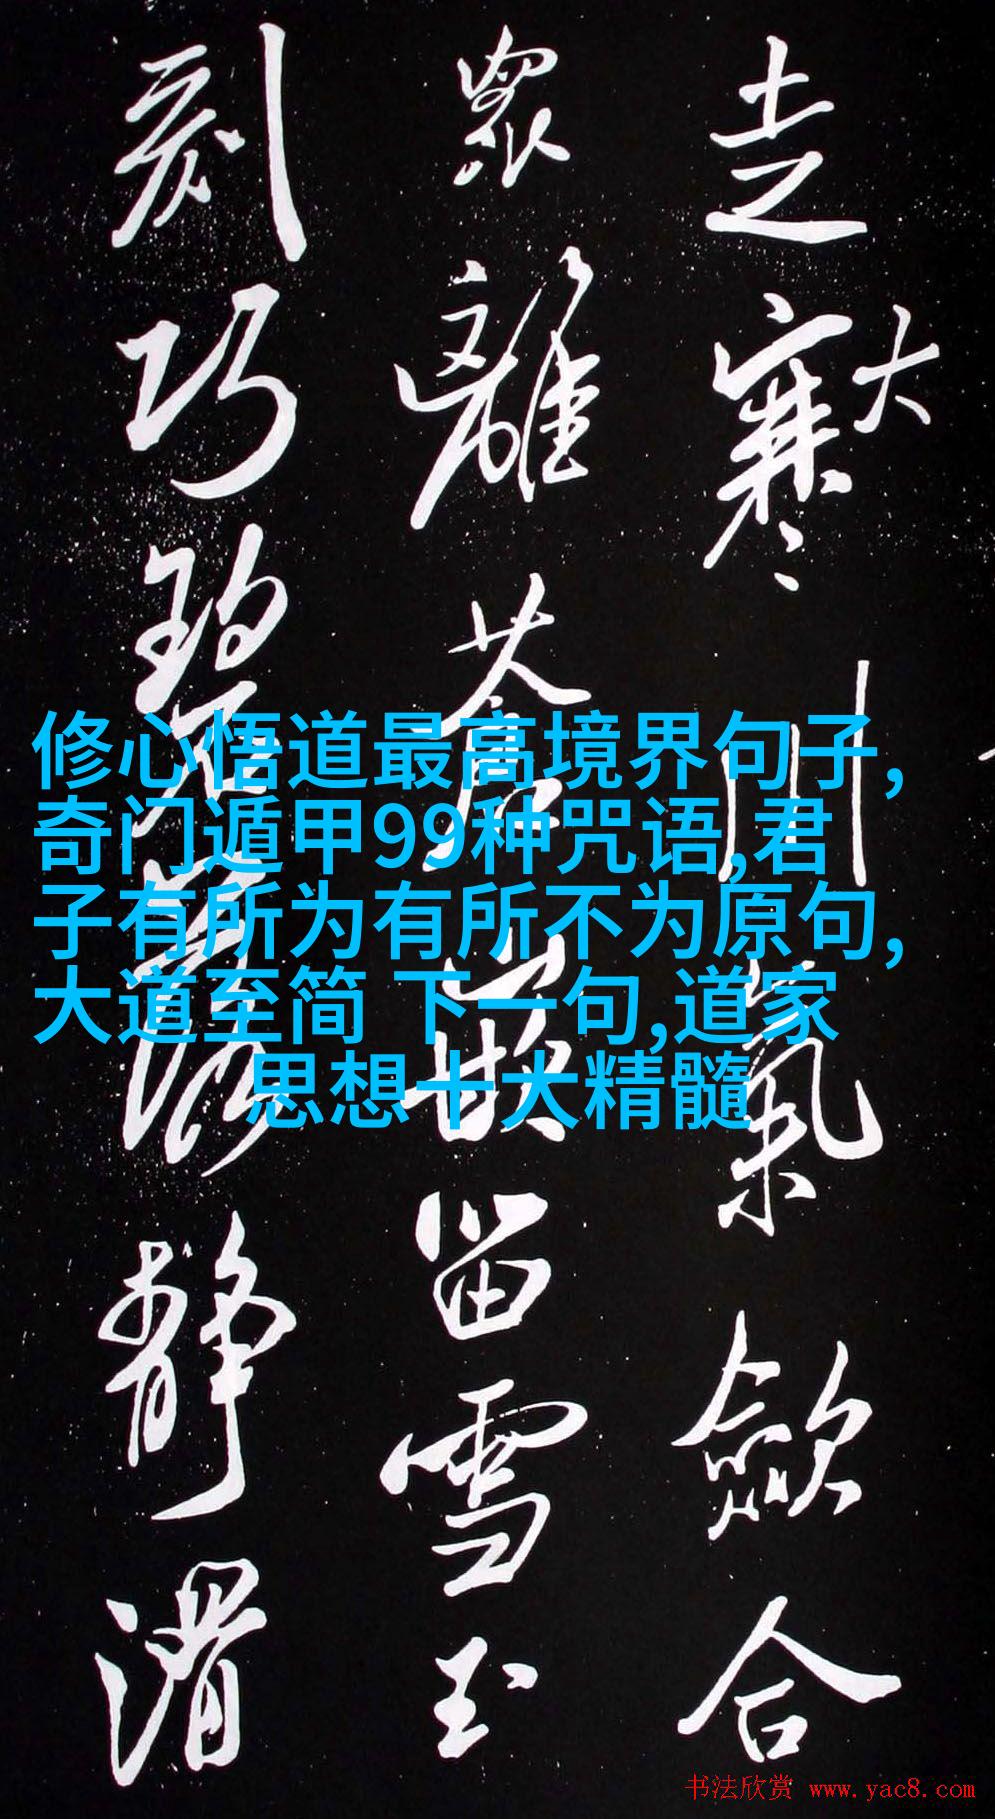 走大寒川氣斂合
眾離
留雪玉
刻巧
靜滑
修心悟道最高境界句子,
奇门遁甲99种咒语,君
子有所为有所不为原句,
大道至简 下一句,道家
思想十大精髓
书法欣赏 www.yac8.com